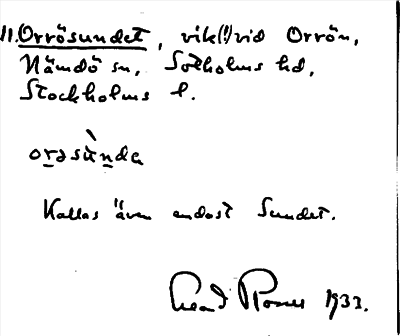 11. Orrösundet, vik(!) vid Orrön,
Nämdö sn, Sotholms hd,
Stockholms l.
orəsùnda
Kallas även endast Sundet.
1933.